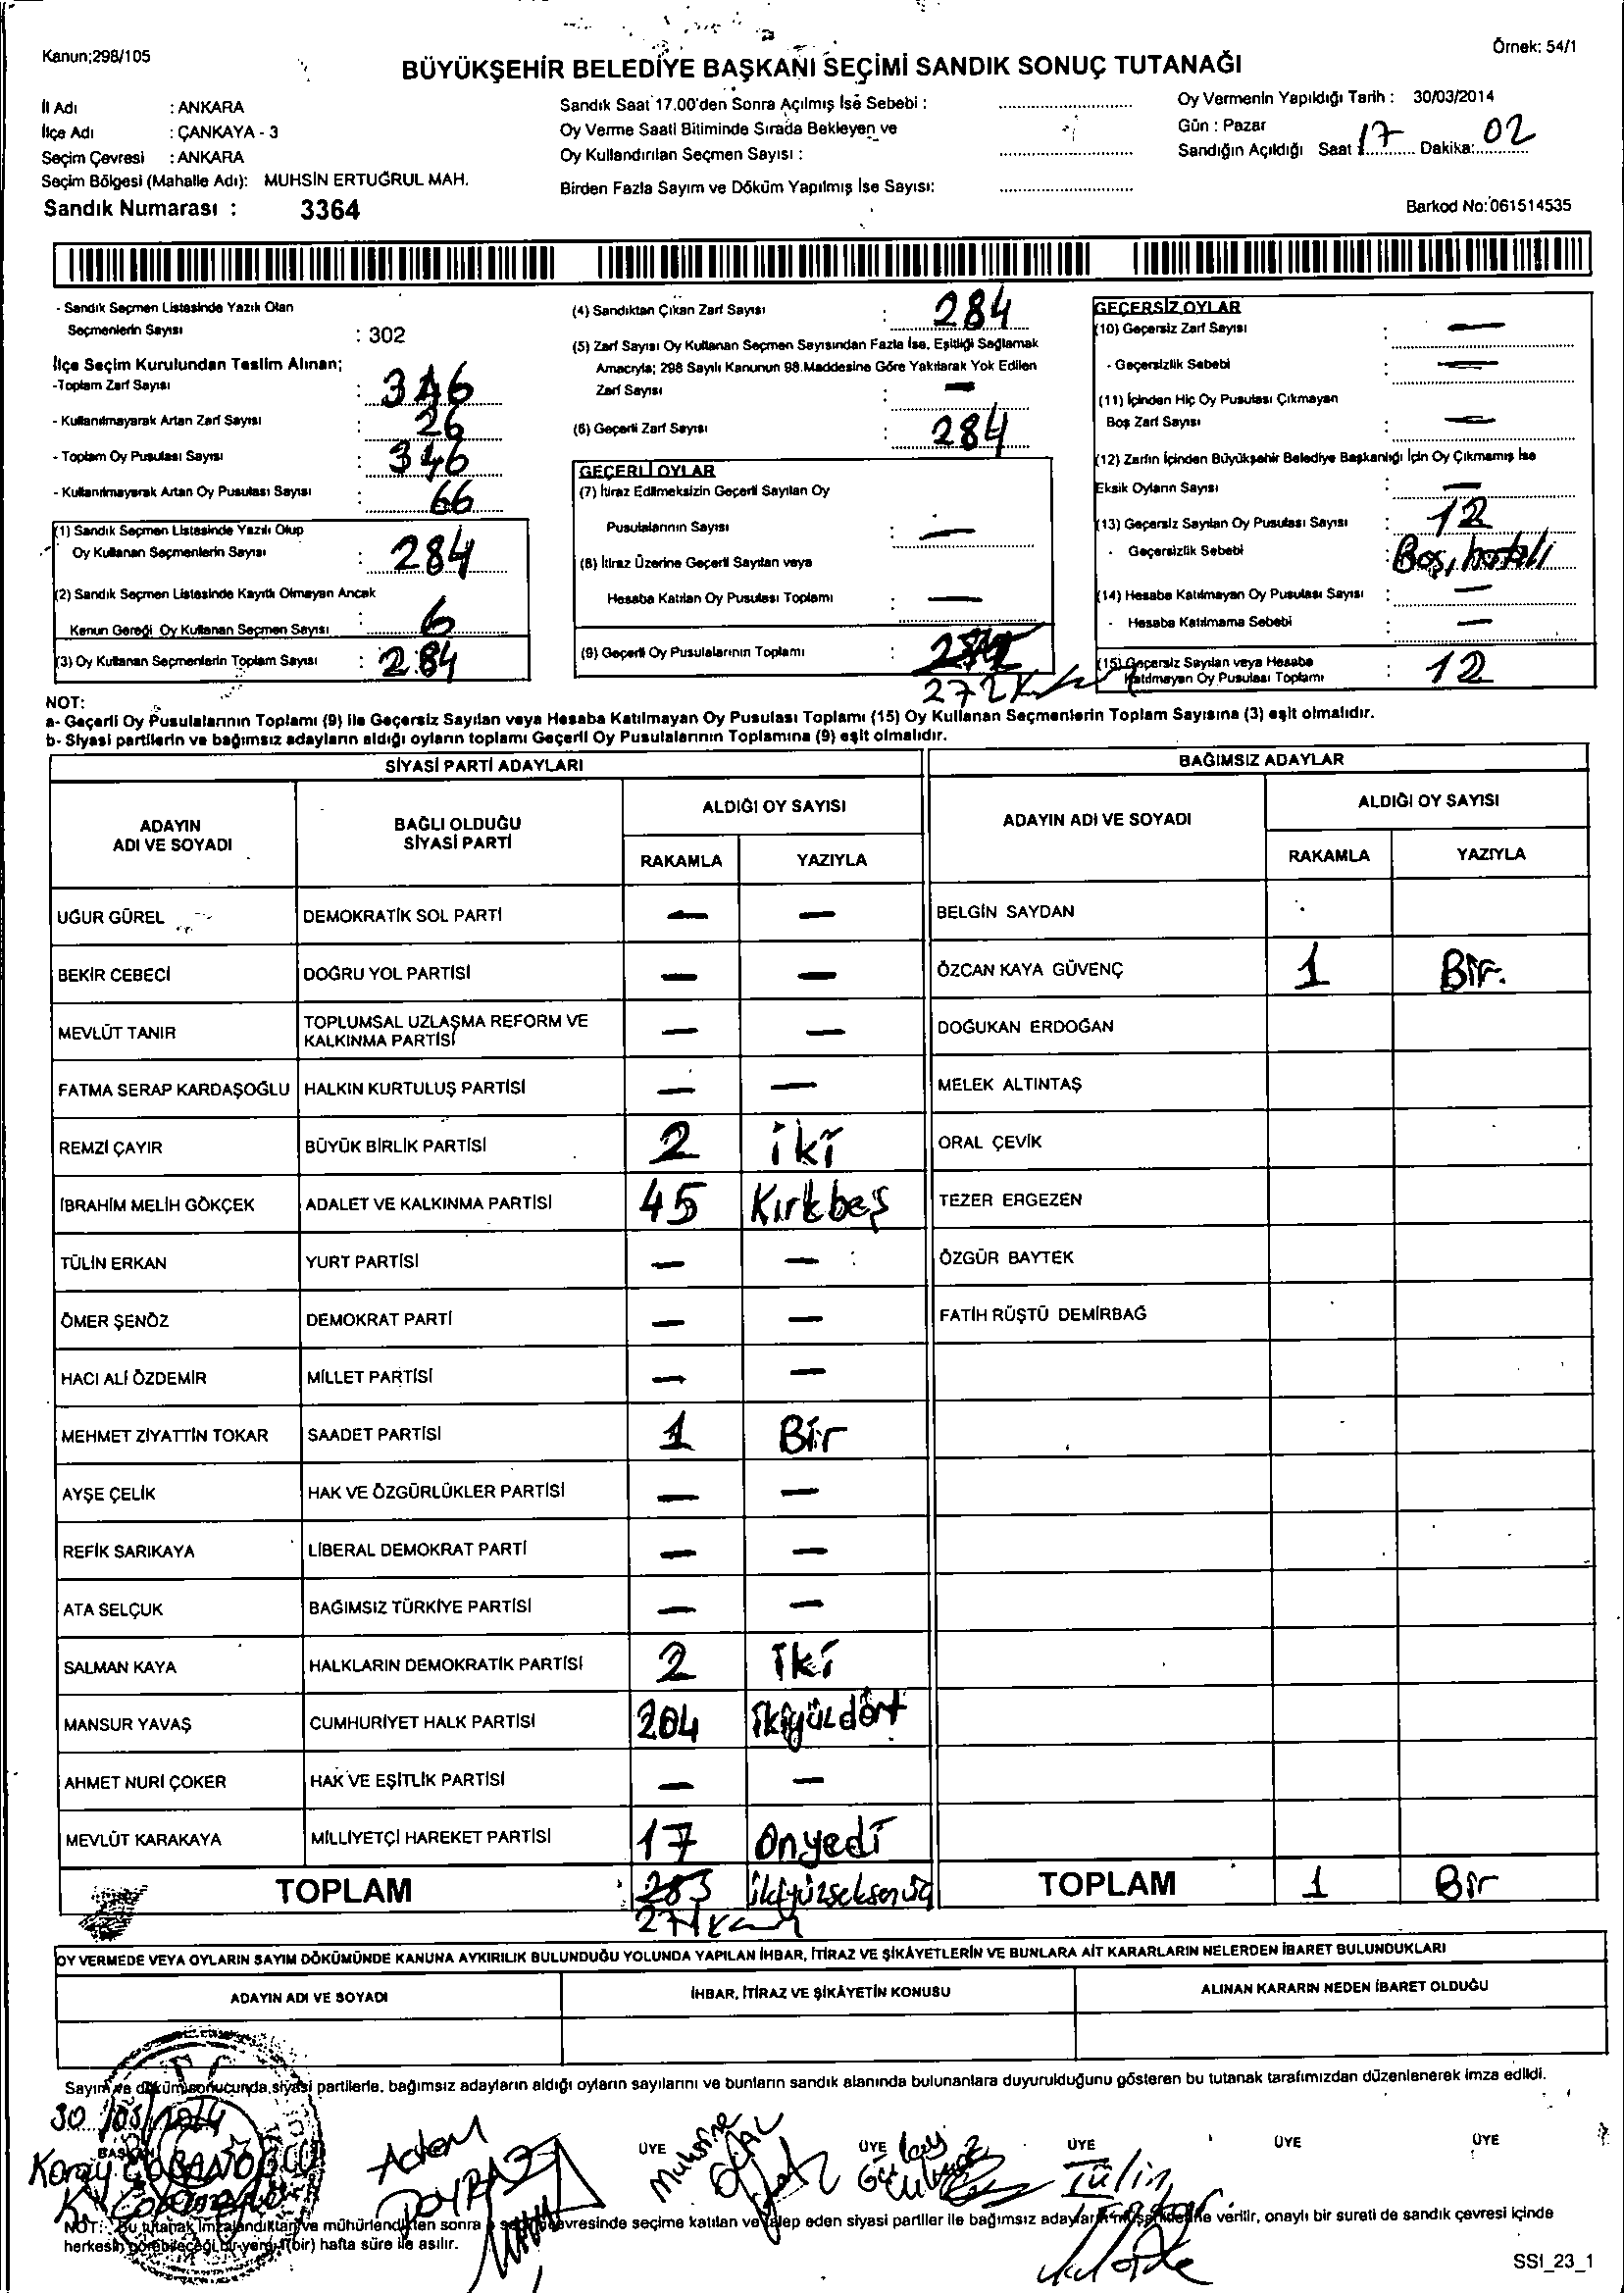 Kanun;298/105
Örnek: 54/1
BÜYÜKŞEHİR BELEDİYE BAŞKANI SEÇİMİ SANDIK SONUÇ TUTANAĞI
İl Adı : ANKARA
İlçe Adı : ÇANKAYA - 3
Seçim Çevresi : ANKARA
Seçim Bölgesi (Mahalle Adı): MUHSİN ERTUĞRUL MAH.
Sandık Numarası : 3364
Sandık Saat 17.00'den Sonra Açılmış İse Sebebi :
Oy Verme Saati Bitiminde Sırada Bekleyen ve
Oy Kullandırılan Seçmen Sayısı :
Birden Fazla Sayım ve Döküm Yapılmış İse Sayısı:
Oy Vermenin Yapıldığı Tarih : 30/03/2014
Gün : Pazar
Sandığın Açıldığı Saat : 17 Dakika: 02
Barkod No: 061514535
- Sandık Seçmen Listesinde Yazılı Olan
Seçmenlerin Sayısı : 302
İlçe Seçim Kurulundan Teslim Alınan;
-Toplam Zarf Sayısı : 346
- Kullanılmayarak Artan Zarf Sayısı : 26
- Toplam Oy Pusulası Sayısı : 346
- Kullanılmayarak Artan Oy Pusulası Sayısı : 66
(1) Sandık Seçmen Listesinde Yazılı Olup
Oy Kullanan Seçmenlerin Sayısı : 284
(2) Sandık Seçmen Listesinde Kayıtlı Olmayan Ancak
Kanun Gereği Oy Kullanan Seçmen Sayısı : 6
(3) Oy Kullanan Seçmenlerin Toplam Sayısı : 284
(4) Sandıktan Çıkan Zarf Sayısı : 284
(5) Zarf Sayısı Oy Kullanan Seçmen Sayısından Fazla İse, Eşitliği Sağlamak
Amacıyla; 298 Sayılı Kanunun 98.Maddesine Göre Yakılarak Yok Edilen
Zarf Sayısı : —
(6) Geçerli Zarf Sayısı : 284
GEÇERLİ OYLAR
(7) İtiraz Edilmeksizin Geçerli Sayılan Oy
Pusulalarının Sayısı : —
(8) İtiraz Üzerine Geçerli Sayılan veya
Hesaba Katılan Oy Pusulası Toplamı : —
(9) Geçerli Oy Pusulalarının Toplamı :
272
GEÇERSİZ OYLAR
(10) Geçersiz Zarf Sayısı : —
- Geçersizlik Sebebi : —
(11) İçinden Hiç Oy Pusulası Çıkmayan
Boş Zarf Sayısı : —
(12) Zarfın İçinden Büyükşehir Belediye Başkanlığı İçin Oy Çıkmamış İse
Eksik Oyların Sayısı : —
(13) Geçersiz Sayılan Oy Pusulası Sayısı : 12
- Geçersizlik Sebebi : Boş, hatalı
(14) Hesaba Katılmayan Oy Pusulası Sayısı : —
- Hesaba Katılmama Sebebi : —
(15) Geçersiz Sayılan veya Hesaba
Katılmayan Oy Pusulası Toplamı : 12
NOT:
a- Geçerli Oy Pusulalarının Toplamı (9) ile Geçersiz Sayılan veya Hesaba Katılmayan Oy Pusulası Toplamı (15) Oy Kullanan Seçmenlerin Toplam Sayısına (3) eşit olmalıdır.
b- Siyasi partilerin ve bağımsız adayların aldığı oyların toplamı Geçerli Oy Pusulalarının Toplamına (9) eşit olmalıdır.
SİYASİ PARTİ ADAYLARI
ADAYIN
ADI VE SOYADI
BAĞLI OLDUĞU
SİYASİ PARTİ
ALDIĞI OY SAYISI
RAKAMLA YAZIYLA
UĞUR GÜREL DEMOKRATİK SOL PARTİ — —
BEKİR CEBECİ DOĞRU YOL PARTİSİ — —
MEVLÜT TANIR TOPLUMSAL UZLAŞMA REFORM VE
KALKINMA PARTİSİ — —
FATMA SERAP KARDAŞOĞLU HALKIN KURTULUŞ PARTİSİ — —
REMZİ ÇAYIR BÜYÜK BİRLİK PARTİSİ 2 iki
İBRAHİM MELİH GÖKÇEK ADALET VE KALKINMA PARTİSİ 45 Kırkbeş
TÜLİN ERKAN YURT PARTİSİ — —
ÖMER ŞENÖZ DEMOKRAT PARTİ — —
HACI ALİ ÖZDEMİR MİLLET PARTİSİ — —
MEHMET ZİYATTİN TOKAR SAADET PARTİSİ 1 Bir
AYŞE ÇELİK HAK VE ÖZGÜRLÜKLER PARTİSİ — —
REFİK SARIKAYA LİBERAL DEMOKRAT PARTİ — —
ATA SELÇUK BAĞIMSIZ TÜRKİYE PARTİSİ — —
SALMAN KAYA HALKLARIN DEMOKRATİK PARTİSİ 2 İki
MANSUR YAVAŞ CUMHURİYET HALK PARTİSİ 204 İkiyüzdört
AHMET NURİ ÇOKER HAK VE EŞİTLİK PARTİSİ — —
MEVLÜT KARAKAYA MİLLİYETÇİ HAREKET PARTİSİ 17 Onyedi
TOPLAM 283 ikiyüzseksenüç
271
BAĞIMSIZ ADAYLAR
ADAYIN ADI VE SOYADI
ALDIĞI OY SAYISI
RAKAMLA YAZIYLA
BELGİN SAYDAN
ÖZCAN KAYA GÜVENÇ 1 Bir.
DOĞUKAN ERDOĞAN
MELEK ALTINTAŞ
ORAL ÇEVİK
TEZER ERGEZEN
ÖZGÜR BAYTEK
FATİH RÜŞTÜ DEMİRBAĞ
TOPLAM 1 Bir
OY VERMEDE VEYA OYLARIN SAYIM DÖKÜMÜNDE KANUNA AYKIRILIK BULUNDUĞU YOLUNDA YAPILAN İHBAR, İTİRAZ VE ŞİKÂYETLERİN VE BUNLARA AİT KARARLARIN NELERDEN İBARET BULUNDUKLARI
ADAYIN ADI VE SOYADI
İHBAR, İTİRAZ VE ŞİKÂYETİN KONUSU
ALINAN KARARIN NEDEN İBARET OLDUĞU
Sayım ve döküm sonucunda, siyasi partilerle, bağımsız adayların aldığı oyların sayılarını ve bunların sandık alanında bulunanlara duyurulduğunu gösteren bu tutanak tarafımızdan düzenlenerek imza edildi.
30/03/2014
BAŞKAN ÜYE ÜYE ÜYE ÜYE ÜYE
Koray ÇOBANOĞLU
Adem POYRAZ
Tülin
NOT: Bu tutanak imzalandıktan ve mühürlendikten sonra seçim çevresinde seçime katılan ve talep eden siyasi partiler ile bağımsız adayların müşahidine verilir, onaylı bir sureti de sandık çevresi içinde
herkesin görebileceği bir yere 1(bir) hafta süre ile asılır.
SSI_23_1